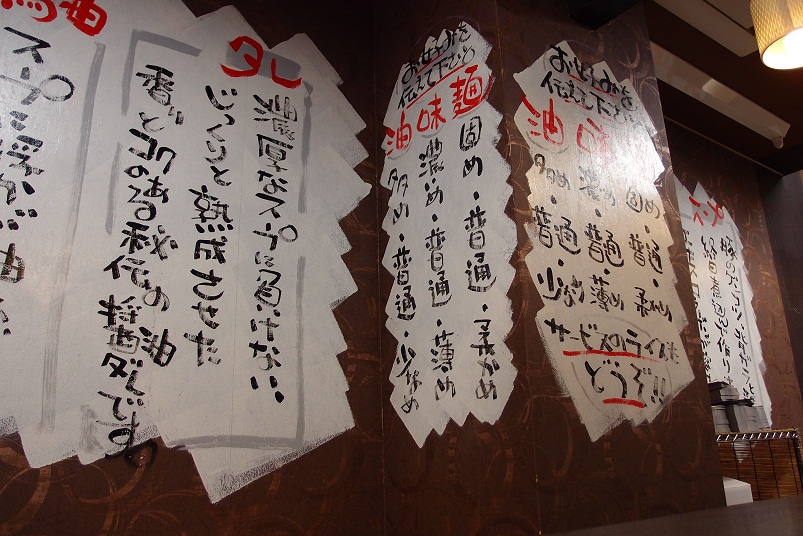 お好みを
伝えて下さい
麺 固め・普通・柔かめ
味 濃いめ・普通・薄め
油 多め・普通・少なめ
サービスのライスも
どうぞ!!
お好みを
伝えて下さい
麺 固め・普通・柔かめ
味 濃いめ・普通・薄め
油 多め・普通・少なめ
タレ
濃厚なスープに負けない
じっくりと熟成させた
香りとコクのある秘伝の醤油ダレです。
油
スープに浮かぶ油